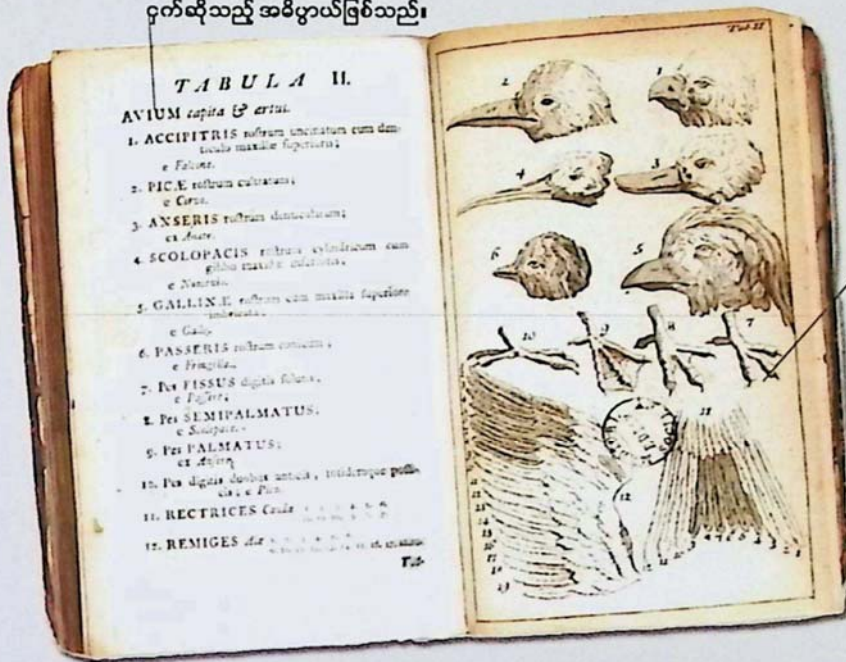 ငှက်ဆိုသည့် အဓိပ္ပာယ်ဖြစ်သည်။
TABULA II.
AVIUM capita & artus.
1. ACCIPITRIS rostrum uncinatum cum den-
ticulo maxillæ superioris;
e Falcone.
2. PICÆ rostrum cultratum;
e Corvo.
3. ANSERIS rostrum denticulatum;
ex Anate.
4. SCOLOPACIS rostrum cylindricum cum
gibbo
e Numenio.
5. GALLINÆ rostrum cum maxilla superiore
imbricata;
e Gallo.
6. PASSERIS rostrum conicum;
e Fringilla.
7. Pes FISSUS digitis solutis;
e Passere;
8. Pes SEMIPALMATUS;
e Scolopace.
9. Pes PALMATUS;
ex Ansere,
10. Pes digitis duobus anticis, totidemque posti-
cis; e Pico.
11. RECTRICES Caudæ
12. REMIGES Alæ
Tab-
Tab. II
2 1
4 3
6 5
10 9 8 7
11
12